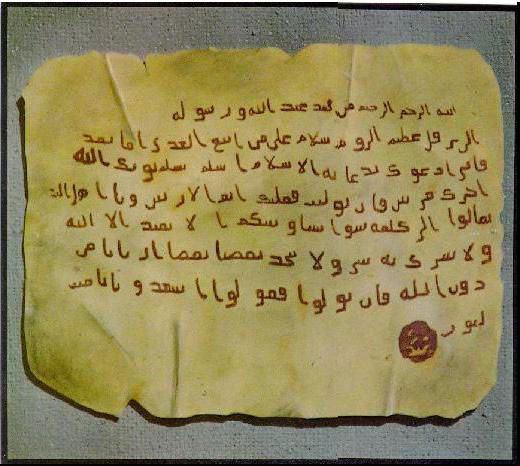 الرحمن الرحيم من محمد عبد الله ورسوله
الى هرقل عظيم الروم سلام على من اتبع الهدى اما بعد
فانى ادعوك بدعاية الاسلام اسلم تسلم يوتك الله
اجرك مرتين فان توليت فعليك اثم ويا اهل
تعالوا الى كلمة سوا بيننا وبينكم الا نعبد الا الله
ولا نشرك به ولا يتخذ بعضنا بعضا اربابا من
دون الله فان تولوا فقولوا اشهدوا بانا مسلمون